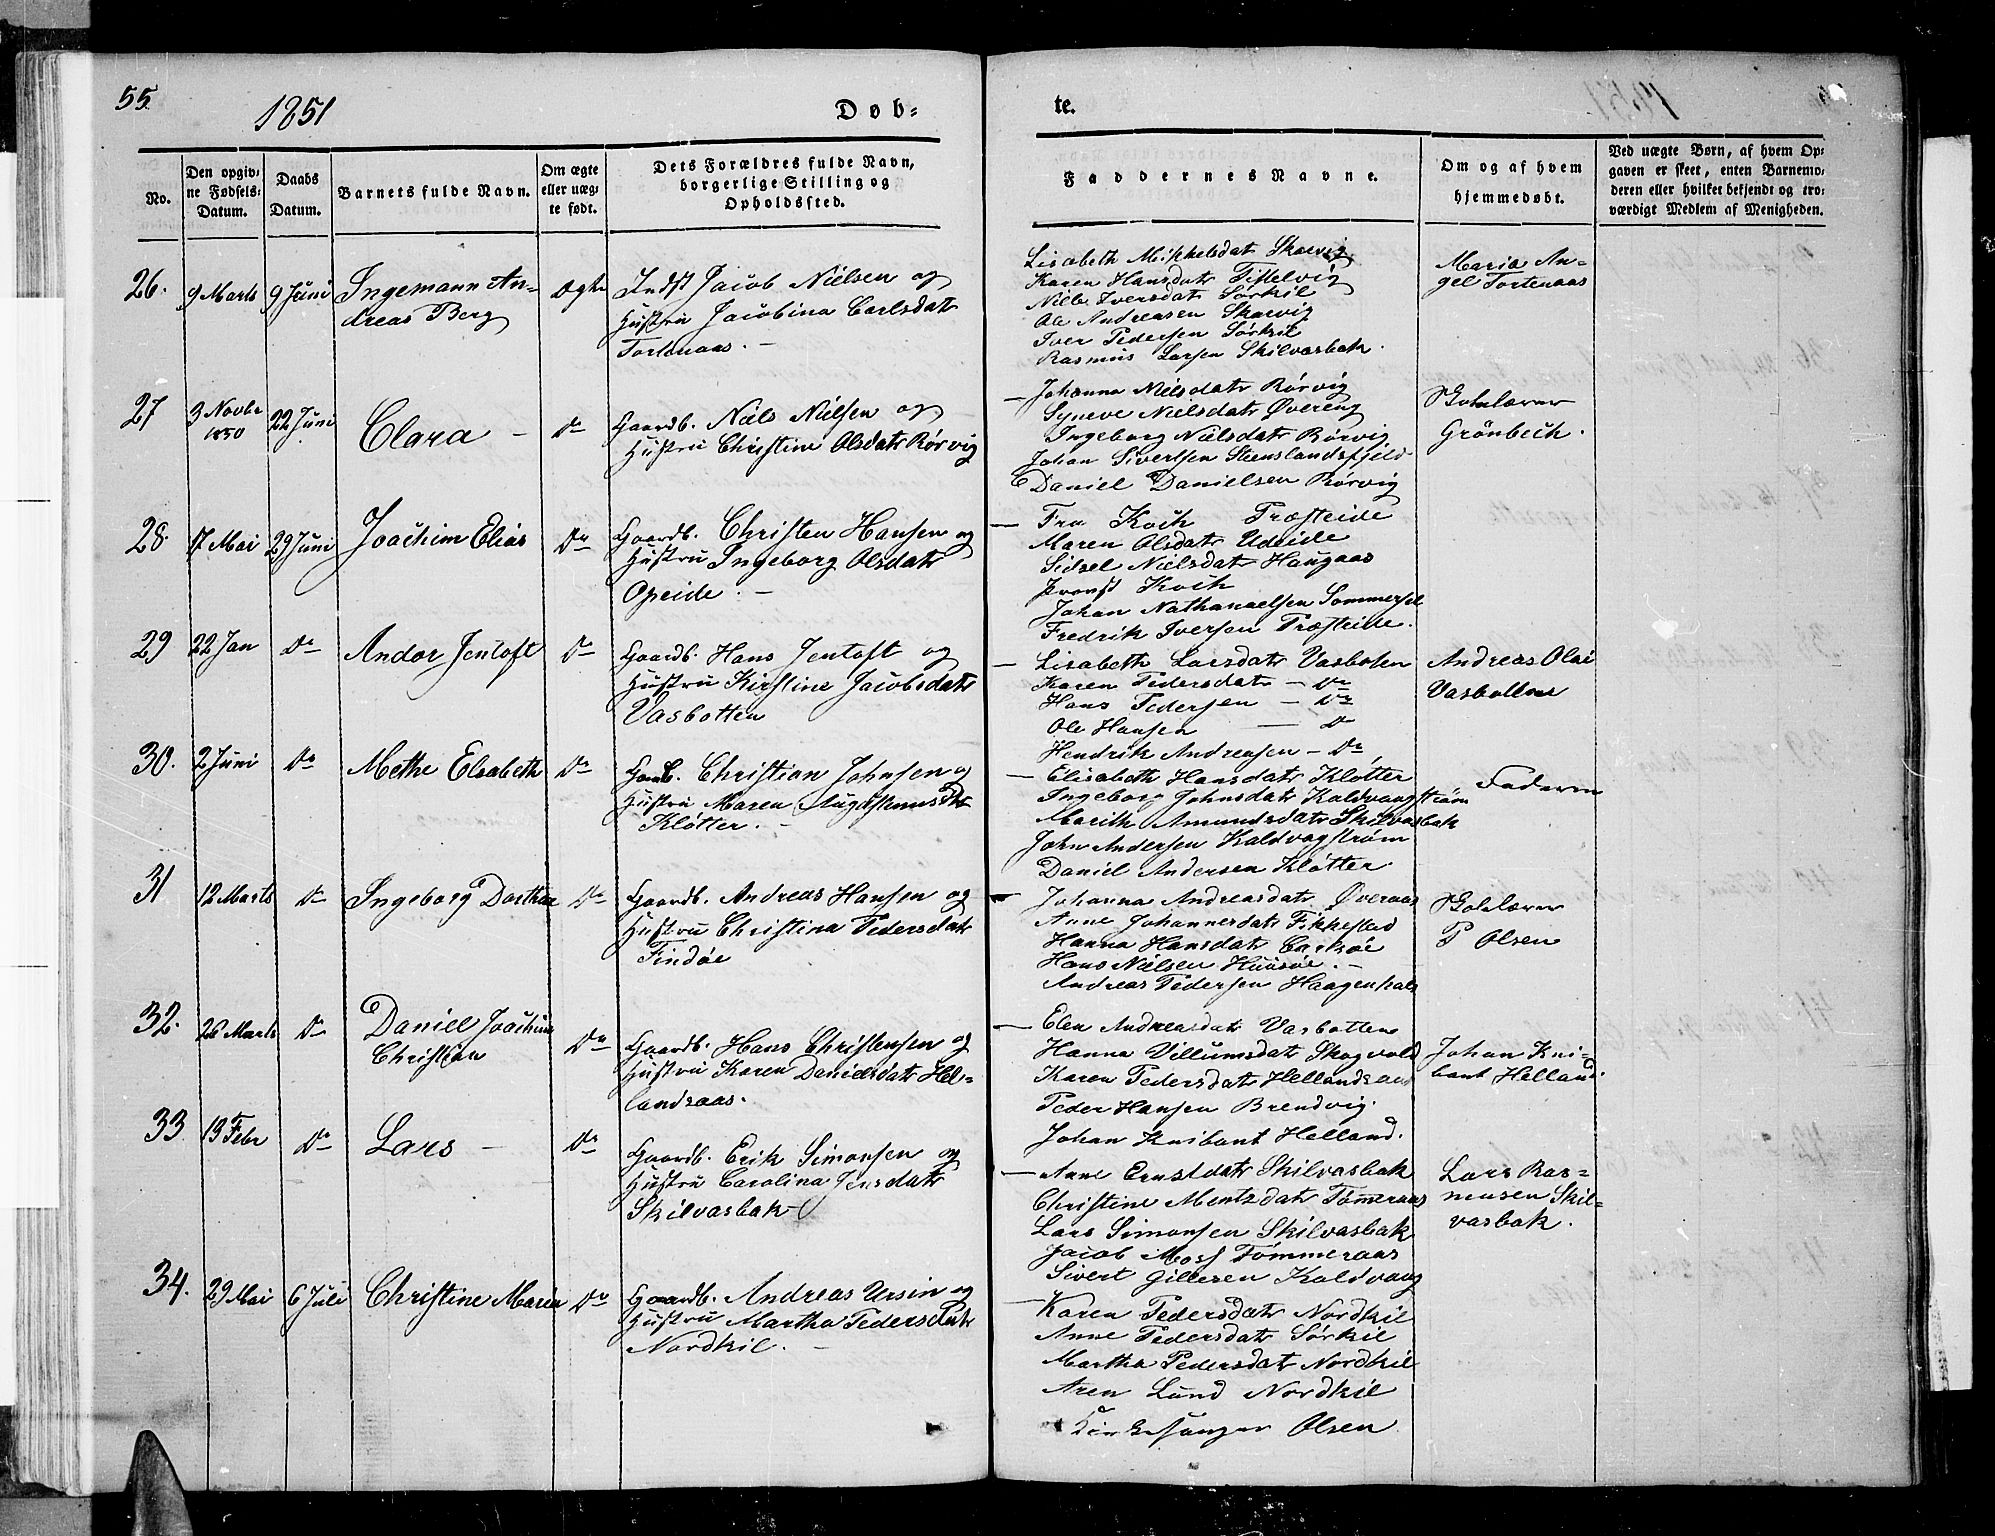 55.
1851
Døb-
te.
No.
Den opgiv-
ne Fødsels-
Datum.
Daabs
Datum.
Barnets fulde Navn.
Om ægte
eller uæg-
te født.
Dets Forældres fulde Navn,
borgerlige Stilling og
Opholdssted.
Faddernes Navne.
Om og af hvem
hjemmedøbt.
Ved uægte Børn, af hvem Op-
gaven er skeet, enten Barnemo-
deren eller hvilket bekjendt og tro-
værdigt Medlem af Menigheden.
26.
9 Marts
9 Juni
Ingemann An-
dreas Berg
Ægte
Indst Jacob Nielsen og
Hustru Jacobina Carlsdatr
Tortenaas.
Lisabeth Mikkelsdatr Skarvig
Karen Hansdatr Tistelvig
Niels Iversdatr Sörkil
Ole Andreasen Skarvig
Iver Pedersen Sörkil
Rasmus Larsen Skilvasbak.
Maria An-
gel Tortenaas
27
3 Novbr
1850
22 Juni
Clara
Do
Gaardb. Niels Nielsen og
Hustru Christine Olsdatr Rörvig
Johanna Nielsdatr Rörvig
Syneve Nielsdatr Övereng
Ingeborg Nielsdatr Rörvig
Johan Sivertsen Steenslandsfjeld
Daniel Danielsen Rörvig
Skolelærer
Grönbech.
28.
17 Mai
29 Juni
Joachim Elias
Do
Gaardb. Christen Hansen og
Hustru Ingeborg Olsdatr
Opeide.
Fru Koch Præsteide
Maren Olsdatr Udeide
Sidsel Nielsdatr Haugaas
Provst Koch
Johan Nathanaelsen Sommersel
Fredrik Iversen Præsteide.
29
22 Jan
Do
Andor Jentoft
Do
Gaardb. Hans Jentoft og
Hustru Kirstine Jacobsdatr
Vasbotten
Lisabeth Larsdatr Vasboten
Karen Pedersdatr - Do
Hans Pedersen - Do
Ole Hansen - Do
Hendrik Andreasen - Do
Andreas Olai
Vasbotten
30.
2 Juni
Do
Methe Elsabeth
Do
Gaardb. Christian Johnsen og
Hustru Maren
Klötter.
Elisabeth Hansdatr Klötter
Ingeborg Johnsdatr Kaldvaagström
Marith Amundsdatr Skilvasbak
John Andersen Kaldvagström
Daniel Andersen Klötter
Faderen
31
12 Marts
Do
Ingeborg Dorthea
Do
Gaardb. Andreas Hansen og
Hustru Christina Pedersdatr
Findöe
Johanna Andreasdatr Överaas
Anne Johannesdatr Fikkestad
Hanna Hansdatr
Hans Nielsen
Andreas Pedersen Haagenhals
Skolelærer
P Olsen
32.
26 Marts
Do
Daniel Joachim
Christian
Do
Gaardb. Hans Christensen og
Hustru Karen Danielsdatr Hel-
landsaas.
Elen Andreasdatr Vasbotten
Hanna Villumsdatr Skogvold
Karen Pedersdatr Hellandsaas
Peder Hansen Brendvig.
Johan Knibant Helland.
Johan Kni-
bant Helland.
33
13 Febr
Do
Lars
Do
Gaardb. Erik Simonsen og
Hustru Carolina Jensdatr
Skilvasbak
Anne Ernstdatr Skilvasbak
Christine Mentzdatr Tömeraas
Lars Simonsen Skilvasbak
Jacob Mosf Tömmeraas
Sivert Gillesen Kaldvaag
Lars Ras-
musen Skil-
vasbak.
34.
29 Mai
6 Juli
Christine Maria
Do
Gaardb. Andreas Ursin og
Hustru Martha Pedersdatr
Nordkil.
Karen Pedersdatr Nordkil
Anne Pedersdatr Sörkil
Martha Pedersdatr Nordkil
Aren Lund Nordkil
Kirkesanger Olsen